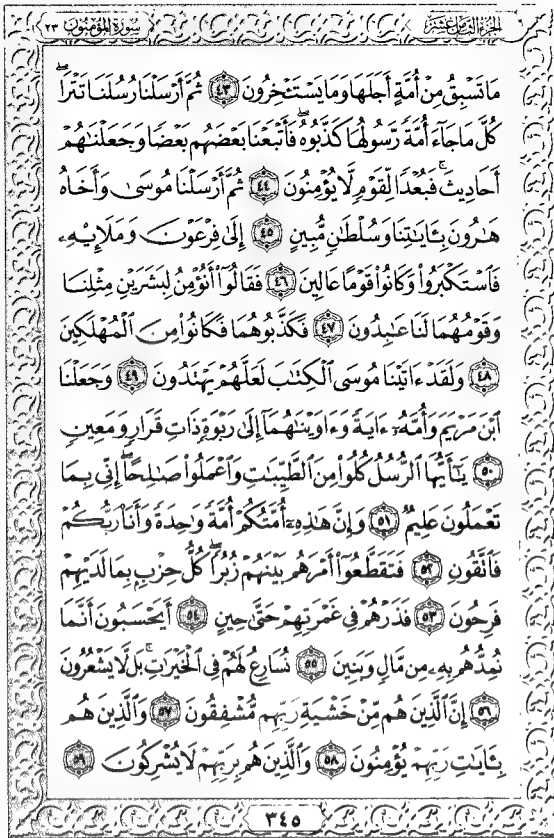 الجزء الثامن عشر
سورة المؤمنون ٢٣
مَا تَسْبِقُ مِنْ أُمَّةٍ أَجَلَهَا وَمَا يَسْتَـْٔخِرُونَ ٤٣ ثُمَّ أَرْسَلْنَا رُسُلَنَا تَتْرَا ۖ
كُلَّ مَا جَآءَ أُمَّةً رَّسُولُهَا كَذَّبُوهُ ۚ فَأَتْبَعْنَا بَعْضَهُم بَعْضًا وَجَعَلْنَـٰهُمْ
أَحَادِيثَ ۚ فَبُعْدًا لِّقَوْمٍ لَّا يُؤْمِنُونَ ٤٤ ثُمَّ أَرْسَلْنَا مُوسَىٰ وَأَخَاهُ
هَـٰرُونَ بِـَٔايَـٰتِنَا وَسُلْطَـٰنٍ مُّبِينٍ ٤٥ إِلَىٰ فِرْعَوْنَ وَمَلَإِي۟هِۦ
فَٱسْتَكْبَرُوا۟ وَكَانُوا۟ قَوْمًا عَالِينَ ٤٦ فَقَالُوٓا۟ أَنُؤْمِنُ لِبَشَرَيْنِ مِثْلِنَا
وَقَوْمُهُمَا لَنَا عَـٰبِدُونَ ٤٧ فَكَذَّبُوهُمَا فَكَانُوا۟ مِنَ ٱلْمُهْلَكِينَ
٤٨ وَلَقَدْ ءَاتَيْنَا مُوسَى ٱلْكِتَـٰبَ لَعَلَّهُمْ يَهْتَدُونَ ٤٩ وَجَعَلْنَا
ٱبْنَ مَرْيَمَ وَأُمَّهُۥٓ ءَايَةً وَءَاوَيْنَـٰهُمَآ إِلَىٰ رَبْوَةٍ ذَاتِ قَرَارٍ وَمَعِينٍ
٥٠ يَـٰٓأَيُّهَا ٱلرُّسُلُ كُلُوا۟ مِنَ ٱلطَّيِّبَـٰتِ وَٱعْمَلُوا۟ صَـٰلِحًا ۖ إِنِّى بِمَا
تَعْمَلُونَ عَلِيمٌ ٥١ وَإِنَّ هَـٰذِهِۦٓ أُمَّتُكُمْ أُمَّةً وَٰحِدَةً وَأَنَا۠ رَبُّكُمْ
فَٱتَّقُونِ ٥٢ فَتَقَطَّعُوٓا۟ أَمْرَهُم بَيْنَهُمْ زُبُرًا ۖ كُلُّ حِزْبٍۭ بِمَا لَدَيْهِمْ
فَرِحُونَ ٥٣ فَذَرْهُمْ فِى غَمْرَتِهِمْ حَتَّىٰ حِينٍ ٥٤ أَيَحْسَبُونَ أَنَّمَا
نُمِدُّهُم بِهِۦ مِن مَّالٍ وَبَنِينَ ٥٥ نُسَارِعُ لَهُمْ فِى ٱلْخَيْرَٰتِ ۚ بَل لَّا يَشْعُرُونَ
٥٦ إِنَّ ٱلَّذِينَ هُم مِّنْ خَشْيَةِ رَبِّهِم مُّشْفِقُونَ ٥٧ وَٱلَّذِينَ هُم
بِـَٔايَـٰتِ رَبِّهِمْ يُؤْمِنُونَ ٥٨ وَٱلَّذِينَ هُم بِرَبِّهِمْ لَا يُشْرِكُونَ ٥٩
٣٤٥